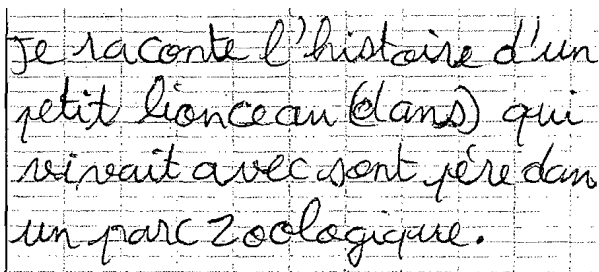 Je raconte l'histoire d'un
petit lionceau (dans) qui
vivait avec sont père dan
un parc zoologique.